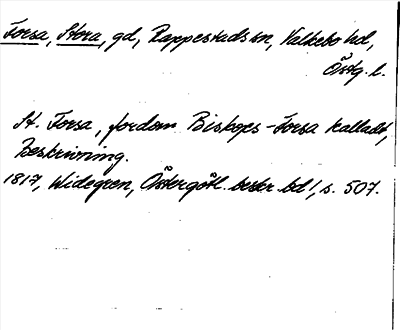 Forsa, Stora, gd, Rappestads sn, Valkebo hd,
Östg. l.
St. Forsa, fordom Biskops-Forsa kalladt,
Beskrivning.
1817, Widegren, Östergötl. beskr. bd 1, s. 507.